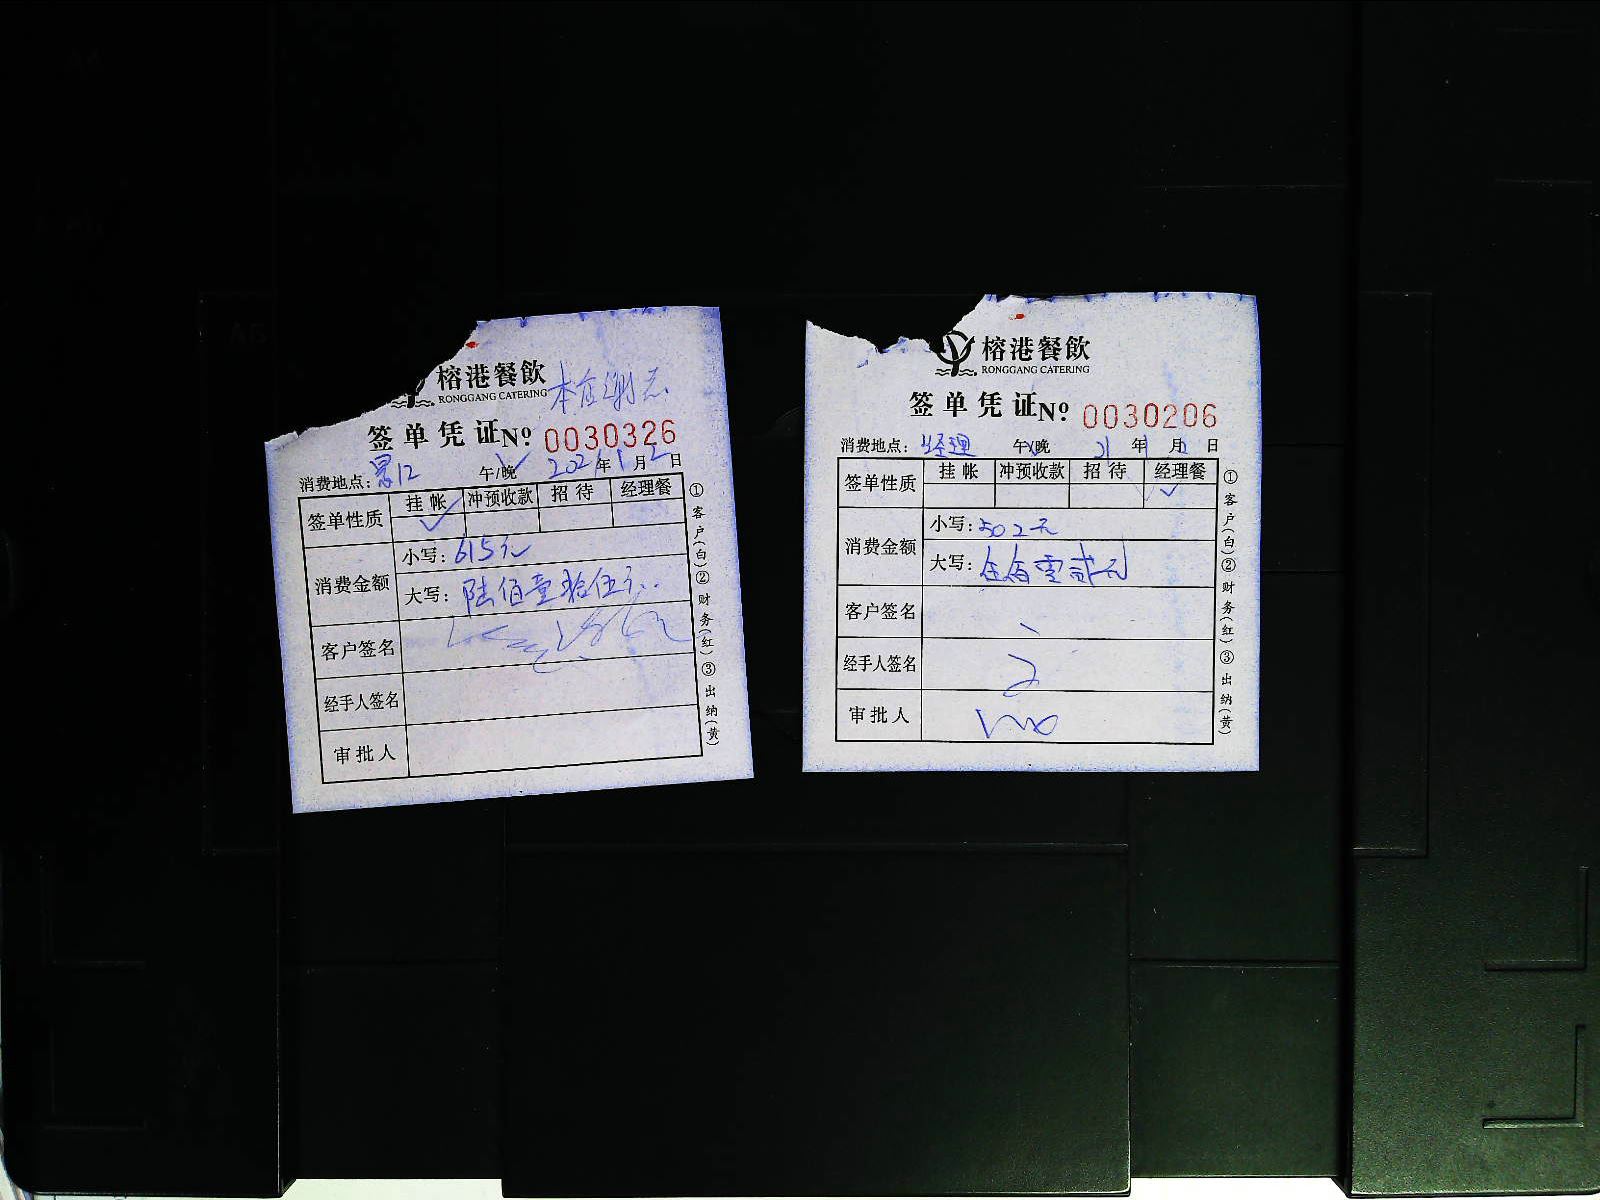 榕港餐飲
RONGGANG CATERING
签单凭证 Nº 0030326
消费地点: 午/晚 2021年1月2日
签单性质 挂帐 冲预收款 招待 经理餐
✓
消费金额 小写: 615元
大写: 陆佰壹拾伍元
客户签名
经手人签名
审批人
①客户(白)②财务(红)③出纳(黄)
榕港餐飲
RONGGANG CATERING
签单凭证 Nº 0030206
消费地点: 经理 午/晚 21年1月2日
签单性质 挂帐 冲预收款 招待 经理餐
✓
消费金额 小写: 502元
大写: 伍佰零贰元
客户签名
经手人签名
审批人
①客户(白)②财务(红)③出纳(黄)